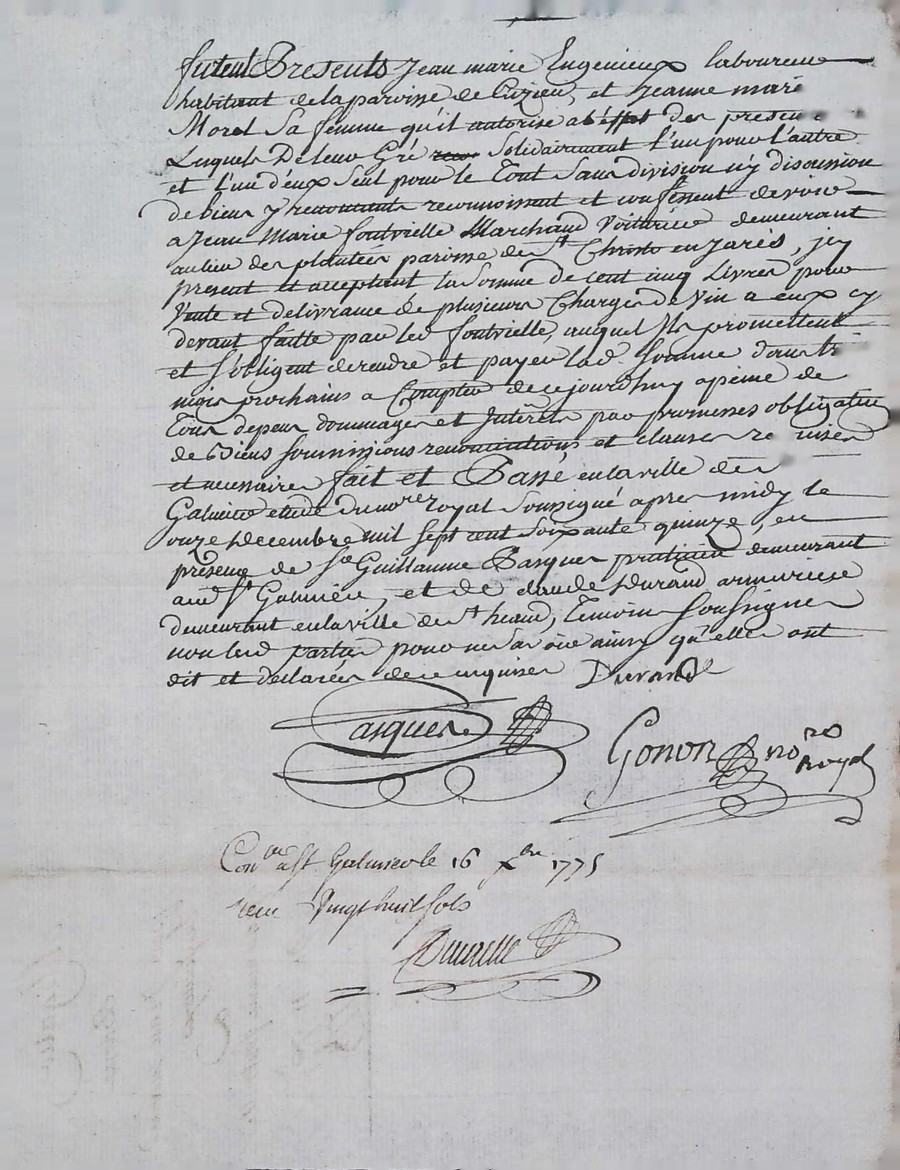 furent Presents Jean marie Engenieux laboureur
habitant de la paroisse de Cuzieu, et Jeanne marie
Morel Sa femme qu'il autorise a l'effet des presentes
Lesquels De leur Gré Solidairement l'un pour l'autre
et l'un d'eux Seul pour le Tout Sans division n'y discussion
de biens y renonceants reconnoissent et confessent devoir
a Jean Marie fontvielle Marchand Voiturier demeurant
au lieu des plantées paroisse de St Christo en Jarés, icy
present et acceptant la Somme de cent cinq Livres pour
Vente et delivrance de plusieurs Charges de Vin a eux cy
devant faitte par led fontvielle, auquel Ils promettent
et S'obligent de rendre et payer lad. Somme dans
mois prochains a Compter de ce jourdhuy a peine de
Tous depens dommages et Intérêts par promesses obligation
de Biens Soumissions renonciations et clauses
et necessaires fait et Passé en la ville de
Galmier etude du nore royal Soussigné apres midy le
onze Decembre mil sept cent Soixante quinze, en
présence de Sr Guillaume Pasquier praticien demeurant
aud St Galmier, et de claude Durand armurier
demeurant en la ville de St heand, Temoins Soussignes
non lesd parties pour ne Sçavoir ainsy qu'elles ont
dit et declarées de ce enquises Durand
Pasquier
Gonon nore
Royal
Conlé a St Galmier le 16 Xbre 1775
recu Vingt huit Sols